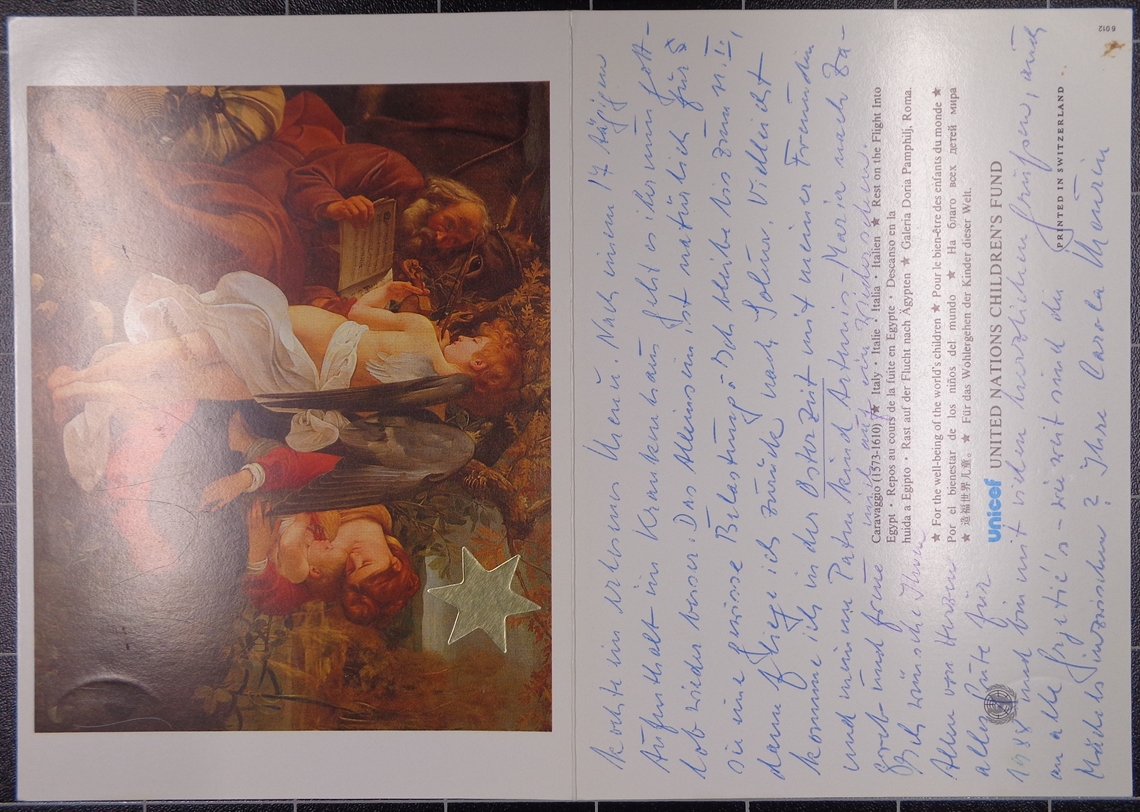 kochte ein erlesenes Menü. Nach einem 17 tägigen
Aufenthalt im Krankenhaus geht es ihr nun Gott-
lob wieder besser. Das Alleinsein ist natürlich für
sie eine gewisse Belastung. Ich bleibe bis zum
dann fliege ich zurück nach Vielleicht
komme ich in der Osterzeit mit meiner Freundin
und meinem Patenkind Artemis-Maria nach Za-
greb und freue mich auf ein Wiedersehen.
Ich wünsche Ihnen
Allen von Herzen
alles Gute für
1988 und bin mit vielen herzlichen Grüßen, auch
an alle - wie weit sind die
Mädels inzwischen? Ihre Carola
Caravaggio (1573-1610) ★ Italy · Italie · Italia · Italien ★ Rest on the Flight Into
Egypt · Repos au cours de la fuite en Egypte · Descanso en la
huida a Egipto · Rast auf der Flucht nach Ägypten ★ Galeria Doria Pamphilj, Roma.
★ For the well-being of the world's children ★ Pour le bien-être des enfants du monde ★
Por el bienestar de los niños del mundo ★ На благо всех детей мира
★ 造福世界儿童。 ★ Für das Wohlergehen der Kinder dieser Welt.
unicef UNITED NATIONS CHILDREN'S FUND
PRINTED IN SWITZERLAND
6012